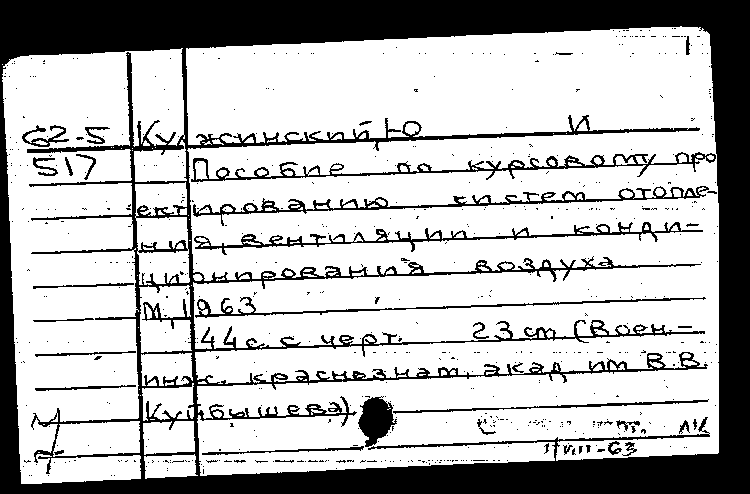 62-5 Кулжинский, Ю И
517 Пособие по курсовому про
ектированию систем отопле-
ния, вентиляции и конди-
ционирования воздуха
М, 1963
44 с. с черт. 23 см (Воен.-
инж. краснознам, акад им В.В.
Куйбышева).
1/VIII-63